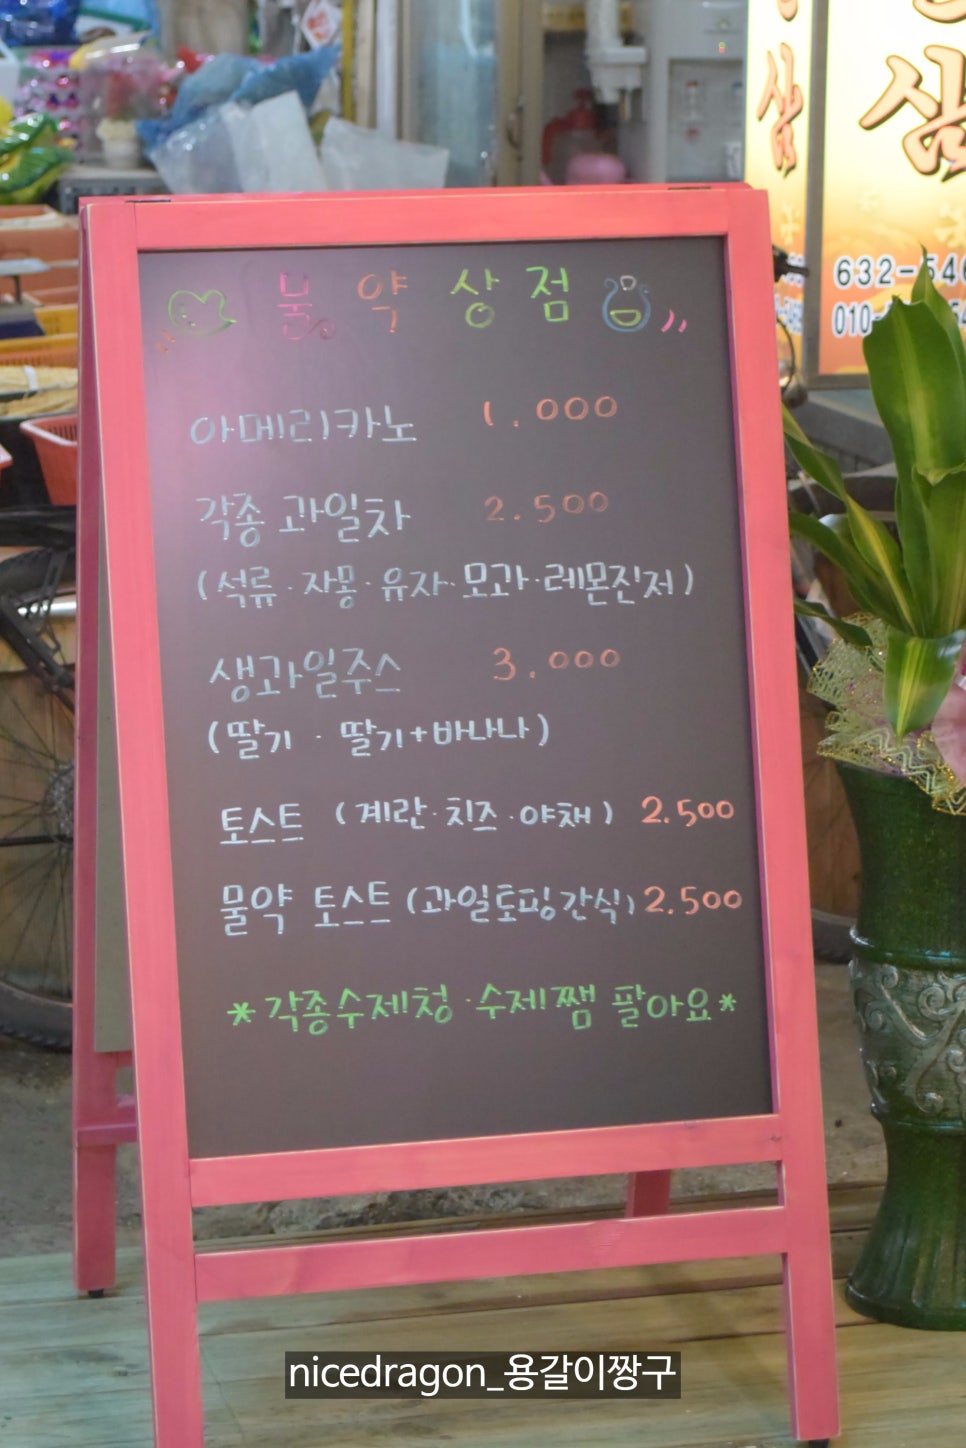 물약상점
아메리카노 1.000
각종 과일차 2.500
(석류·자몽·유자·모과·레몬진저)
생과일주스 3.000
(딸기 · 딸기+바나나)
토스트 (계란·치즈·야채) 2.500
물약 토스트(과일토핑간식) 2.500
*각종수제청·수제쨈 팔아요*
삼
632-546
010-
nicedragon_용갈이짱구